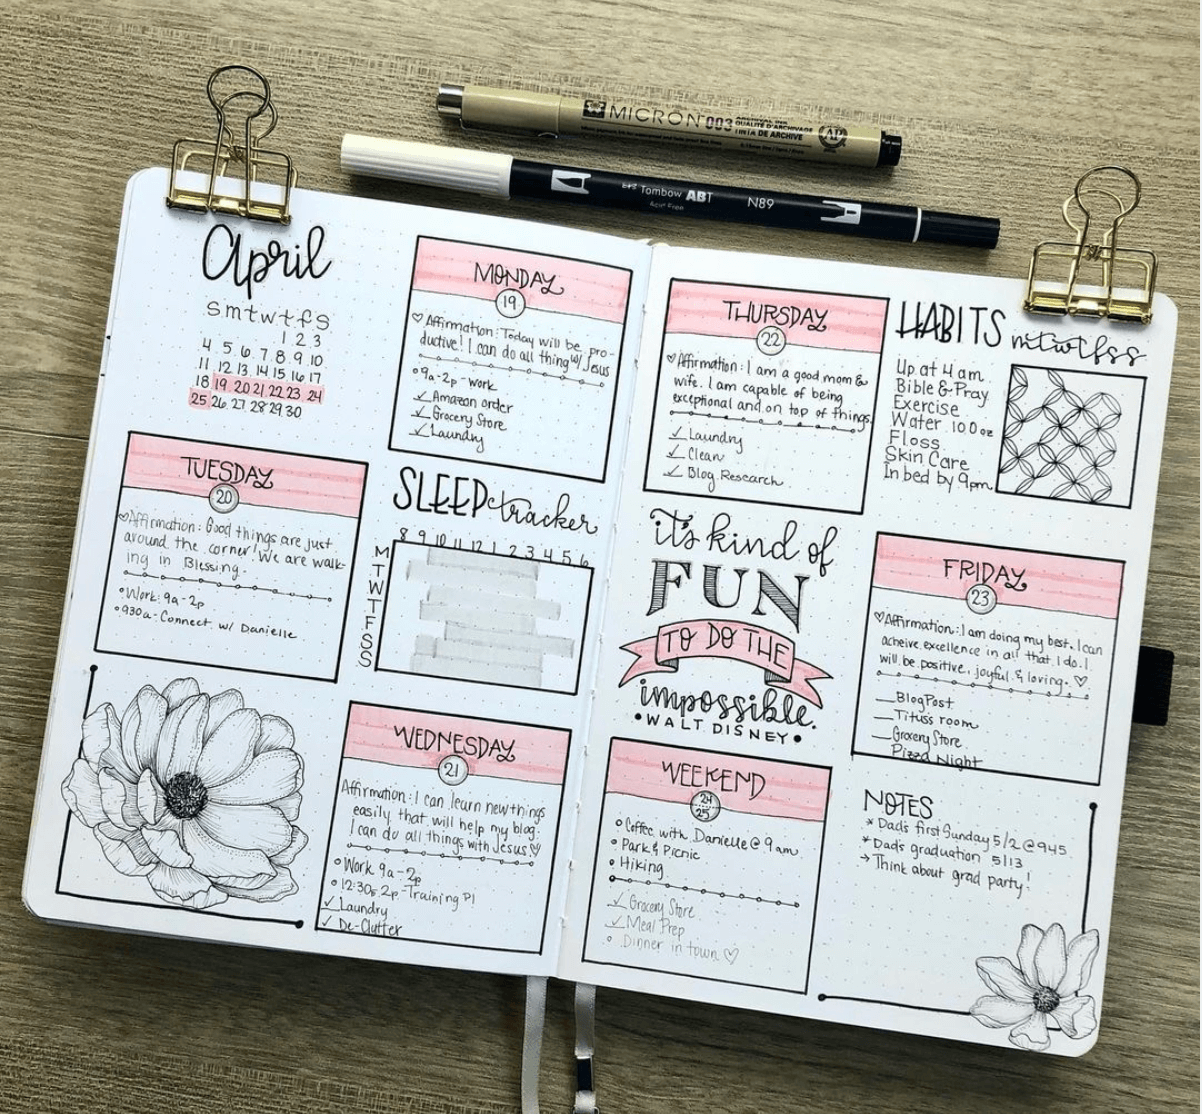 MICRON 003 ARCHIVAL INK
QUALITÉ D'ARCHIVAGE
TINTA DE ARCHIVE
AP
Tombow ABT N89
Acid Free
April
s m t w t f s
1 2 3
4 5 6 7 8 9 10
11 12 13 14 15 16 17
18 19 20 21 22 23 24
25 26 27 28 29 30
MONDAY
19
Affirmation: Today will be pro-
ductive! I can do all thing w/ Jesus
9a-2p - work
Amazon order
Grocery Store
Laundry
TUESDAY
20
Affirmation: Good things are just
around the corner! We are walk-
ing in Blessing.
Work: 9a-2p
930a - Connect w/ Danielle
SLEEP tracker
8 9 10 11 12 1 2 3 4 5 6
M
T
W
T
F
S
S
WEDNESDAY
21
Affirmation: I can learn new things
easily that will help my blog.
I can do all things with Jesus
Work 9a-2p
12:30-2p-Training P1
Laundry
De-Clutter
THURSDAY
22
Affirmation: I am a good mom &
wife. I am capable of being
exceptional and on top of things.
Laundry
Clean
Blog Research
HABITS mtwtfss
Up at 4 am
Bible & Pray
Exercise
Water 100 oz
Floss
Skin Care
In bed by 9pm
it's kind of
FUN
TO DO THE
impossible.
•WALT DISNEY•
FRIDAY
23
Affirmation: I am doing my best. I can
acheive excellence in all that I do. I
will be positive, joyful & loving.
Blog Post
Titus's room
Grocery Store
Pizza Night
WEEKEND
24
25
Coffee with Danielle @ 9am
Park & Picnic
Hiking
Grocery Store
Meal Prep
Dinner in town
NOTES
* Dad's first Sunday 5/2 @ 945
* Dad's graduation 5/13
→ Think about grad party!